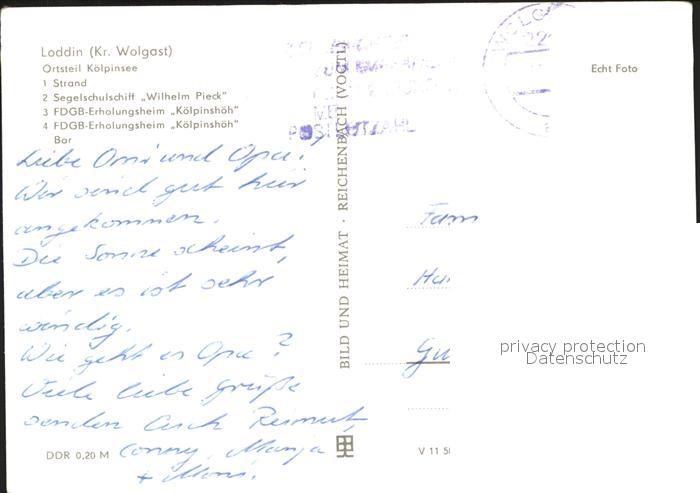 Loddin (Kr. Wolgast)
Ortsteil Kölpinsee
1 Strand
2 Segelschulschiff „Wilhelm Pieck"
3 FDGB-Erholungsheim „Kölpinshöh"
4 FDGB-Erholungsheim „Kölpinshöh"
Bar
Liebe Omi und Opa!
Wir sind gut hier
angekommen.
Die Sonne scheint,
aber es ist sehr
windig.
Wie geht es Opa?
Viele liebe Grüße
senden Euch
Conny, Manja
DDR 0,20 M
BILD UND HEIMAT · REICHENBACH (VOGTL)
POSTLEITZAHL
Echt Foto
Fam
Gu
V 11 50
privacy protection
Datenschutz